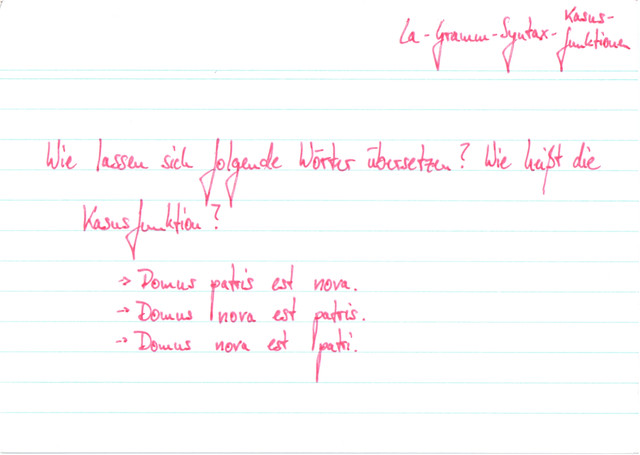 Kasus-
La-Gramm-Syntax-funktionen
Wie lassen sich folgende Wörter übersetzen? Wie heißt die
Kasusfunktion?
→ Domus patris est nova.
→ Domus nova est patris.
→ Domus nova est patri.